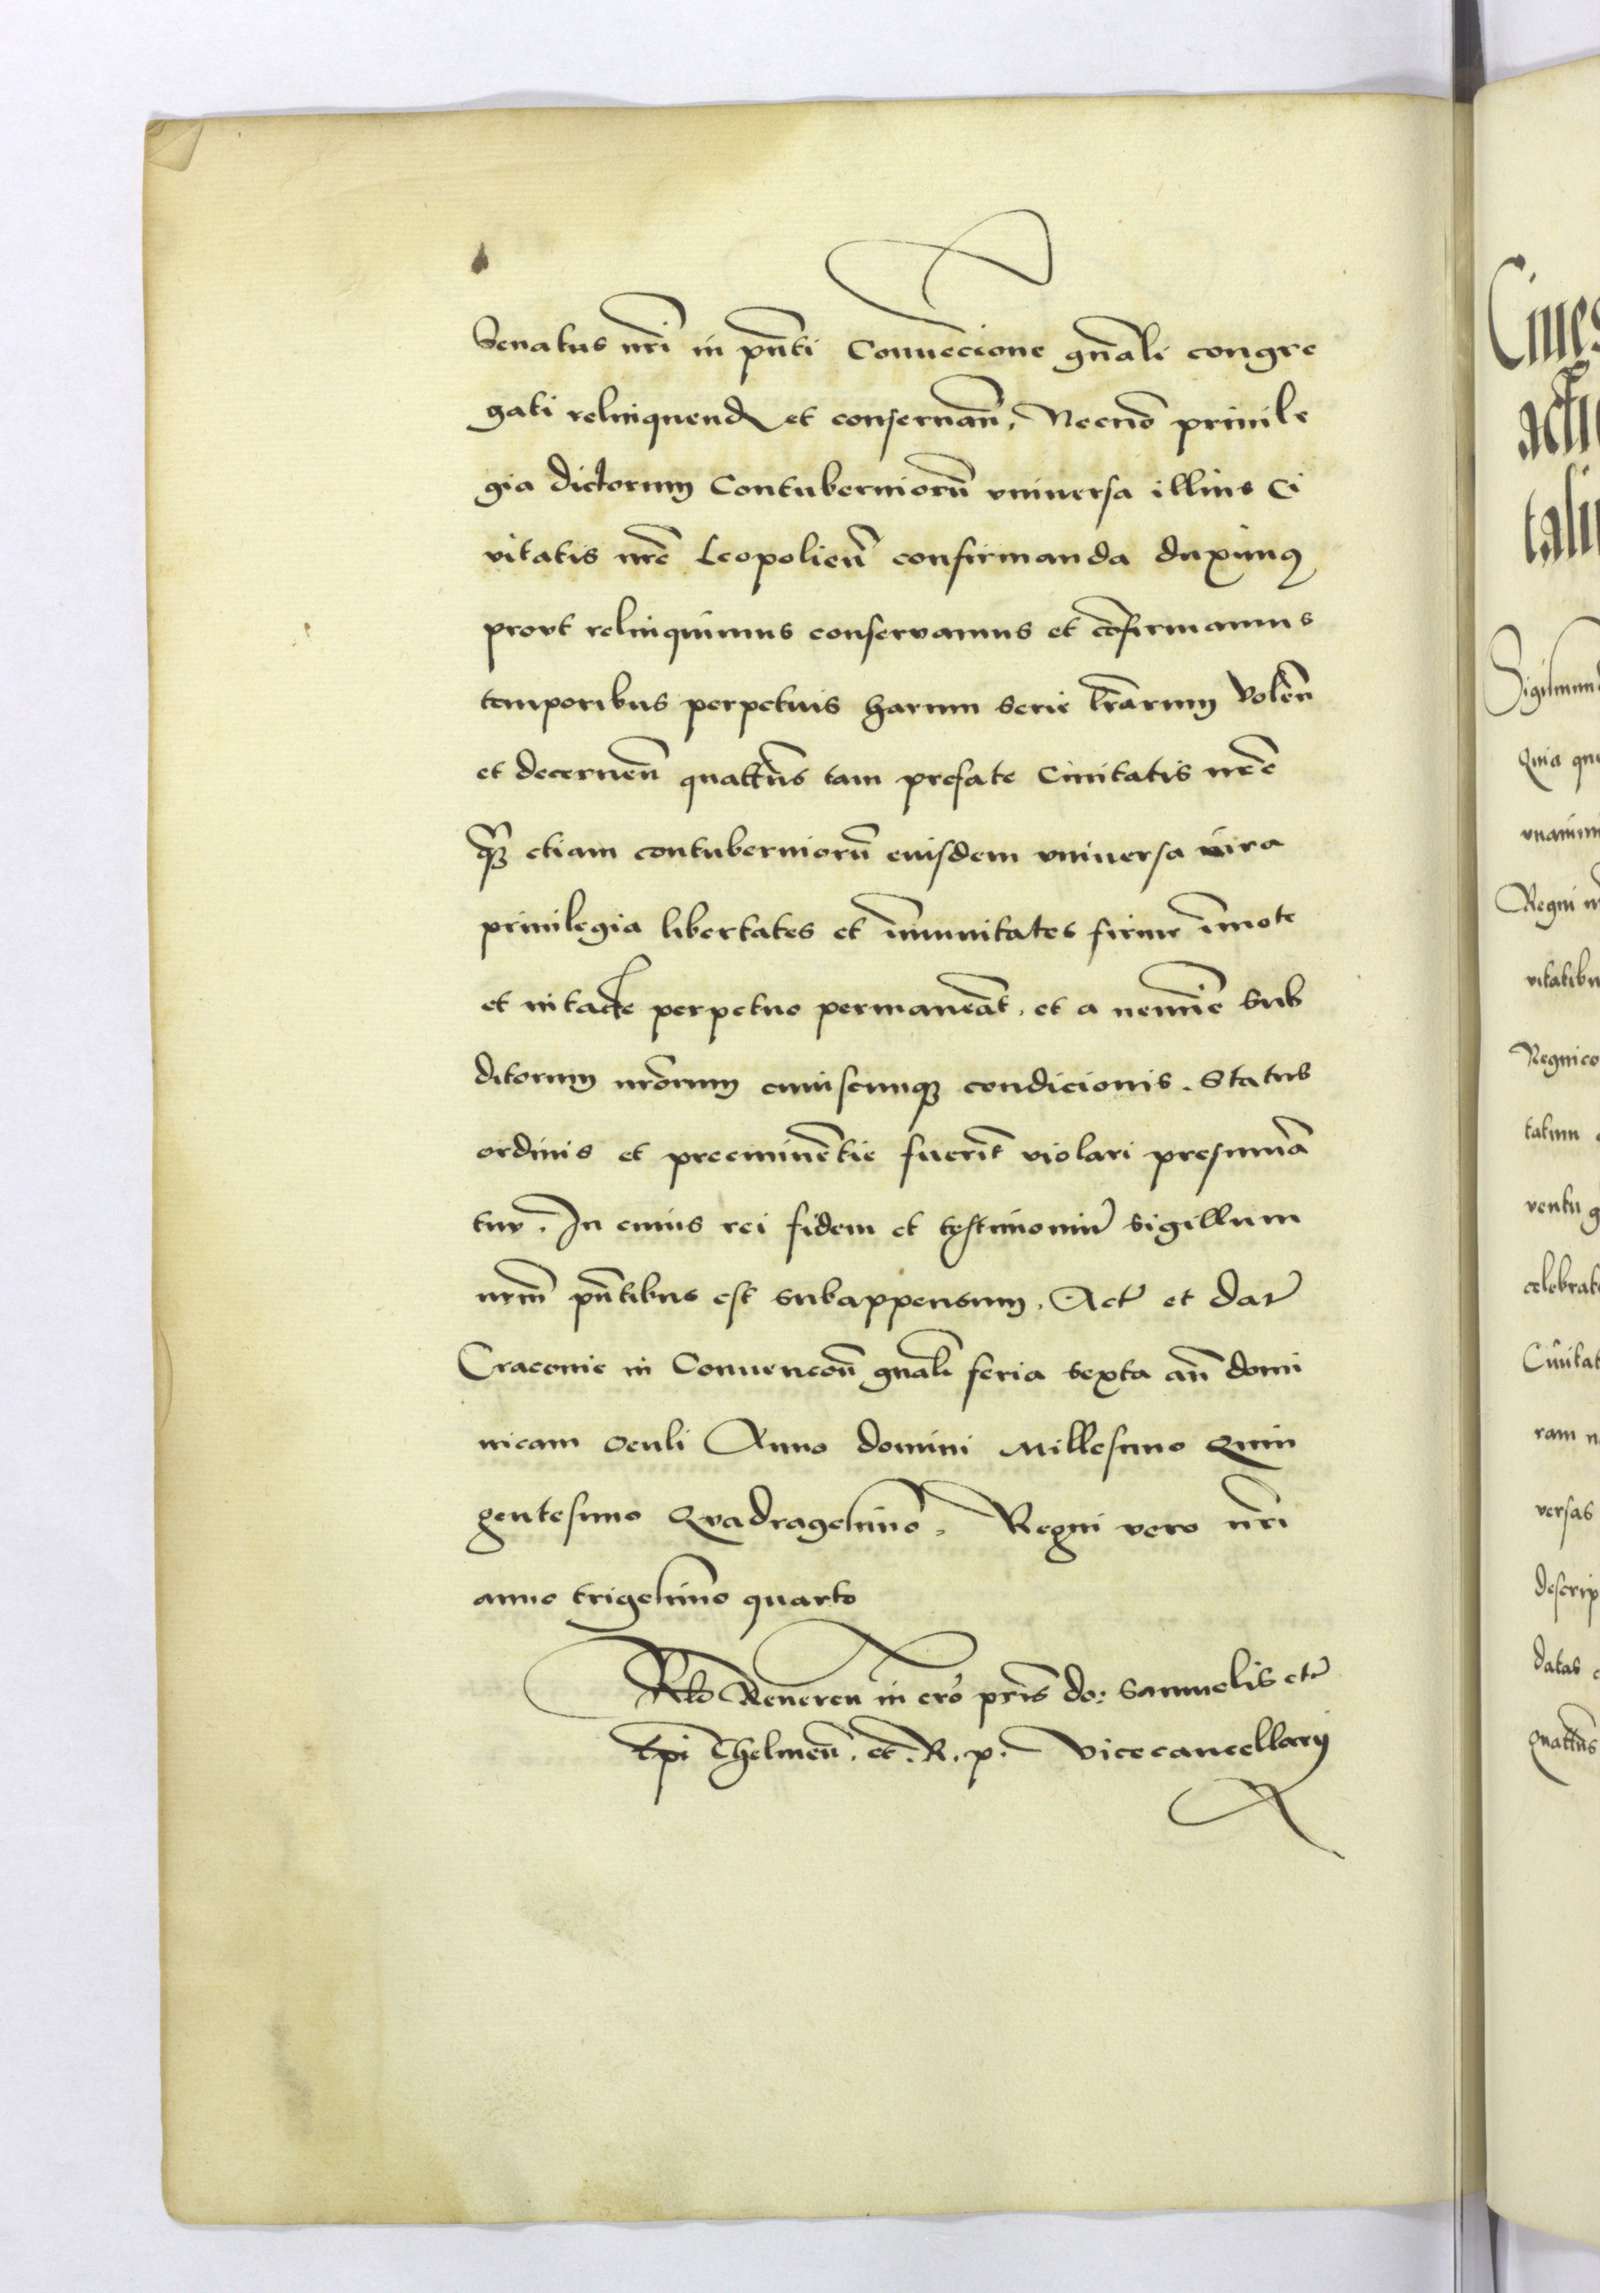 Senatus nr̄i in pn̄ti Convēcione gn̄ali congre
gati relinquend et conservan̄, Necnō privile
gia dictorum Contuberniorū vniuersa illius Ci
vitatis nr̄e Leopolien̄ confirmanda duximus
prout relinquimus conservamus et cōfirmamus
temporibus perpetuis harum serie lr̄arum Volen̄
et decernen̄ quatt̄us tam prefate Civitatis nr̄e
qz etiam contuberniorū eiusdem vniuersa iura
privilegia libertates et īmunitates firme īmote
et intacte perpetuo permaneāt, et a nemīe Sub
ditorum nr̄orum cuiuscunqz condicionis. Status
ordinis et preeminētie fuerīt violari presumā
tur. In cuius rei fidem et testimoniū sigillum
nr̄m pn̄tibus est subappensum. Act̄ et dat̄
Cracovie in Convencōn̄ gn̄ali feria sexta an̄ domi
nicam Oculi Anno domini Millesimo Quin
gentesimo Quadragesimo. Regni vero nr̄i
anno trigesimo quarto
Rlō Reveren in cr̄o pr̄is do: Samuelis etc̄
Ep̄i Chelmen̄. et. R. p. Vicecancellarij
Cives
acti
tali
Sigismun
Quia qu
vnanim
Regni n
vitatibu
Regnico
tatum
ventu g
celebrat
Civitat
ram n
versas
descrip
datas
quatt̄us